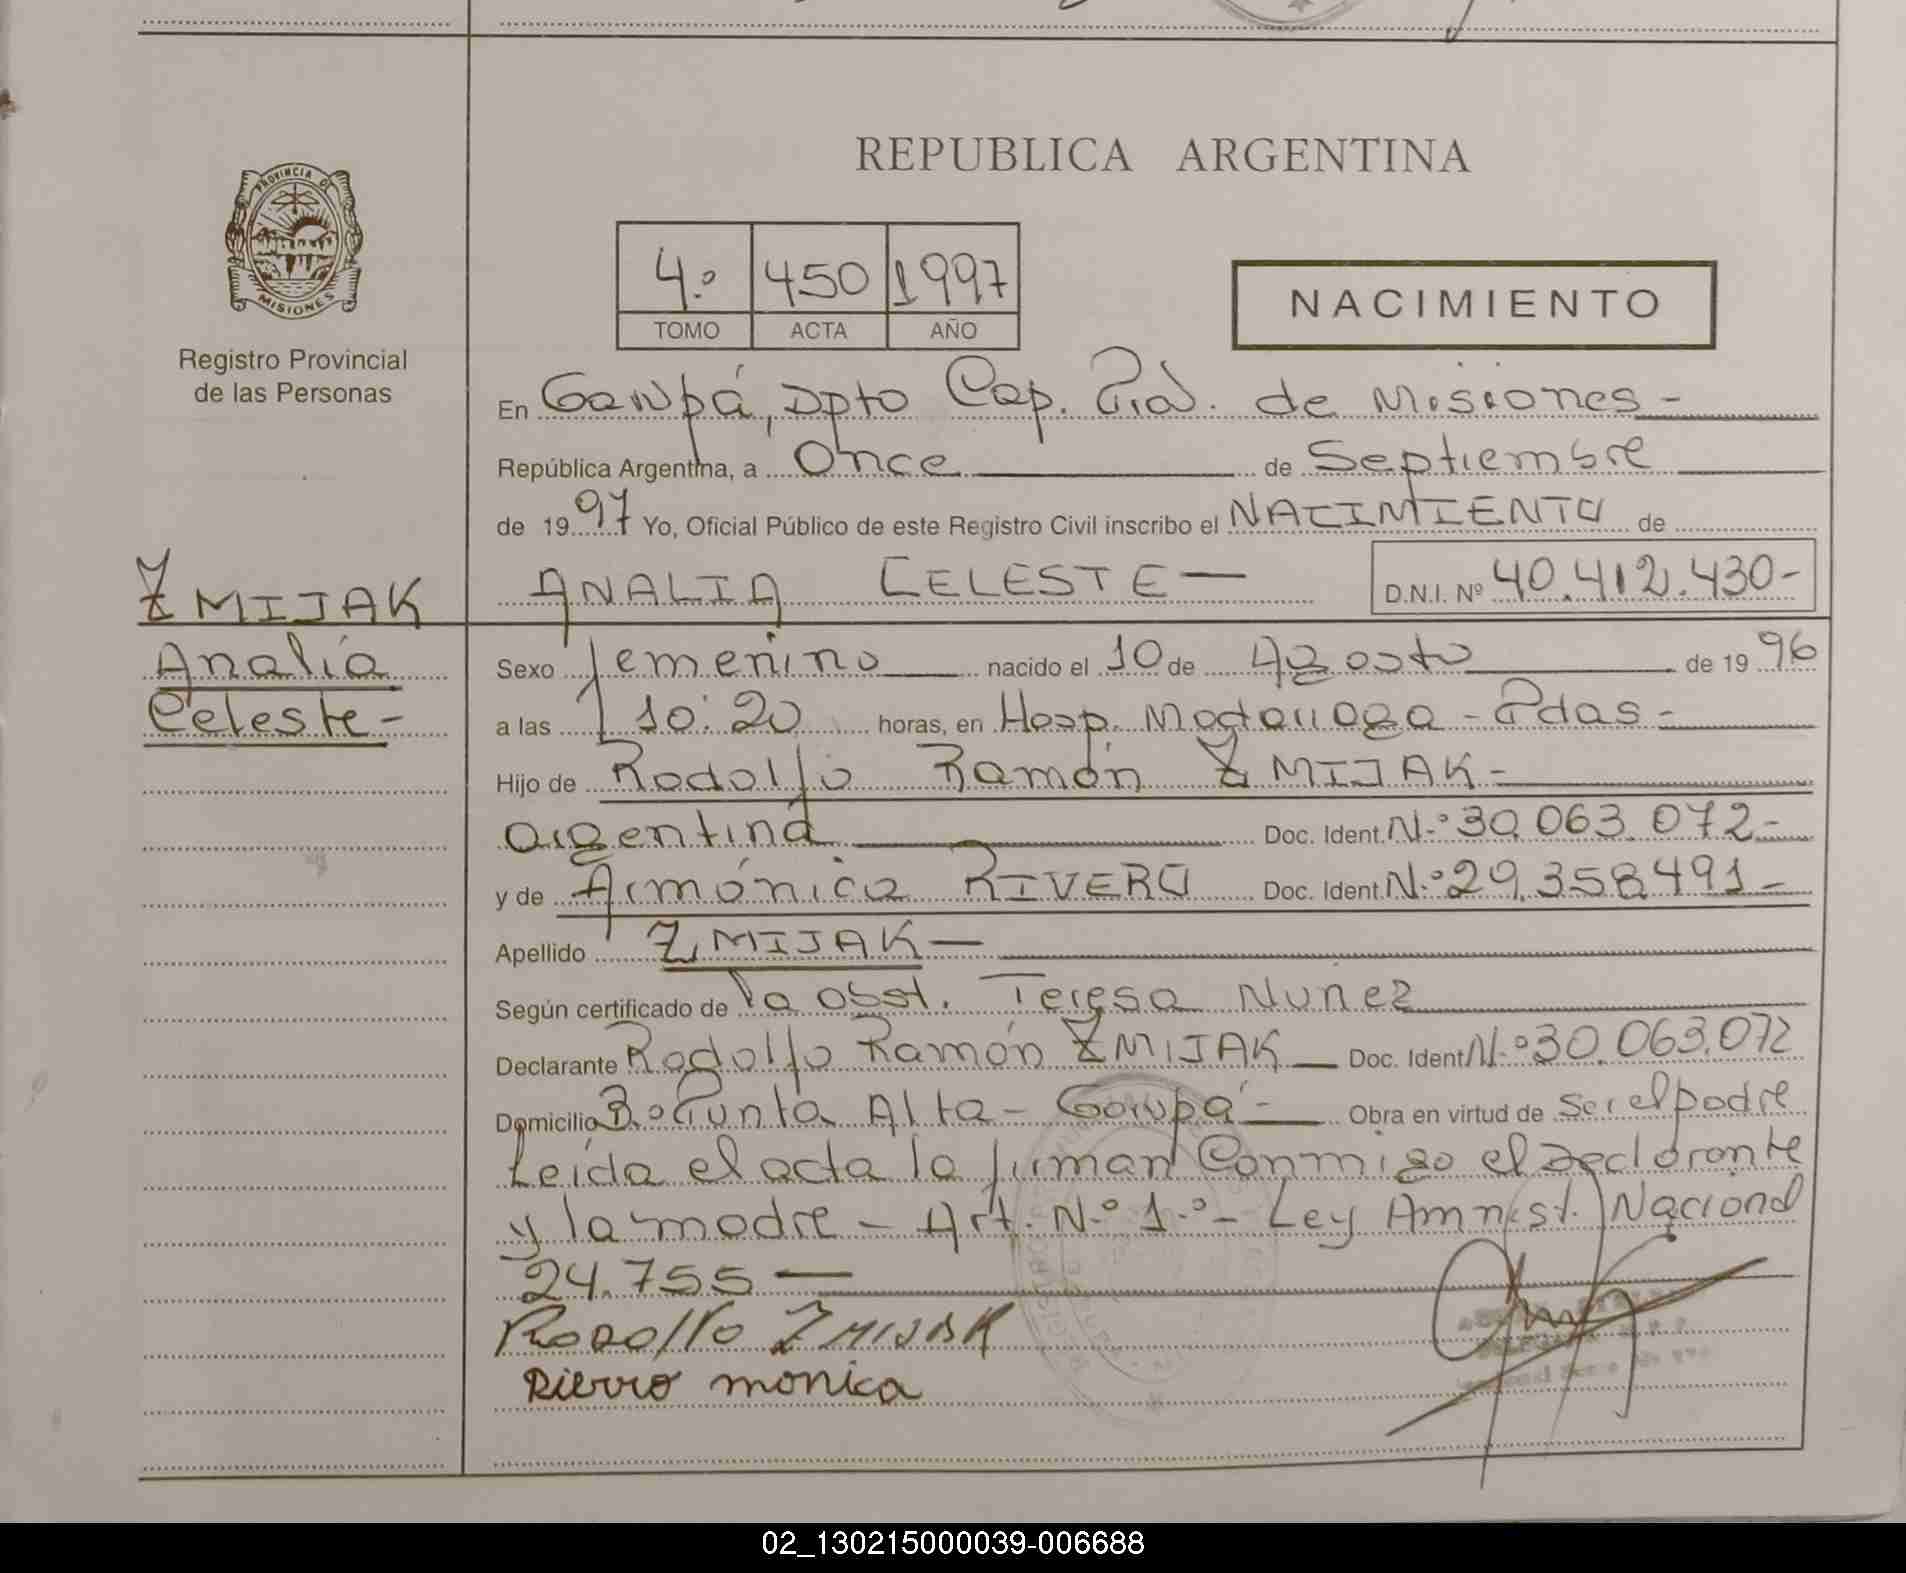 REPUBLICA ARGENTINA
PROVINCIA DE
MISIONES
Registro Provincial
de las Personas
4.º 450 1997
TOMO ACTA AÑO
NACIMIENTO
En Garupá, Dpto Cap. Prov. de Misiones -
República Argentina, a Once de Septiembre
de 1997 Yo, Oficial Público de este Registro Civil inscribo el NACIMIENTO de
ANALIA CELESTE — D.N.I. Nº 40.412.430-
ZMIJAK
Analía
Celeste -
Sexo femenino nacido el 10 de Agosto de 1996
a las 10:20 horas, en Hosp. Madariaga - Pdas -
Hijo de Rodolfo Ramón ZMIJAK -
argentina Doc. Ident. N.º 30.063.072-
y de Armónica RIVERO Doc. Ident. N.º 29.358.491-
Apellido ZMIJAK —
Según certificado de la obst. Teresa Nuñez
Declarante Rodolfo Ramón ZMIJAK — Doc. Ident. N.º 30.063.072
Domicilio B.º Punta Alta - Garupá - Obra en virtud de ser el padre
Leída el acta la firman conmigo el declarante
y la madre - Art. N.º 1.º - Ley Amnist. Nacional
24.755 —
Rodolfo ZMIJAK
Rierro monica
02_130215000039-006688